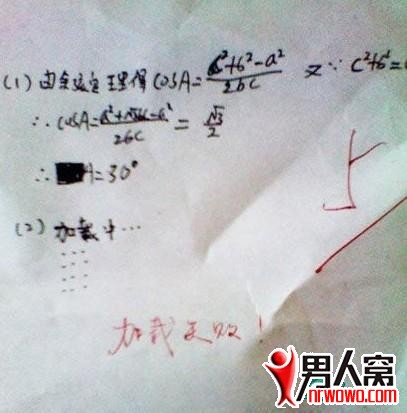 (1) 由余弦定理得 cosA = (c²+b²-a²)/2bc 又∵ c²+b²=
∴ cosA = (a²+√3bc-a²)/2bc = √3/2
∴ A=30°
(2) 加载中…
加载失败!
男人窝
nrwowo.com